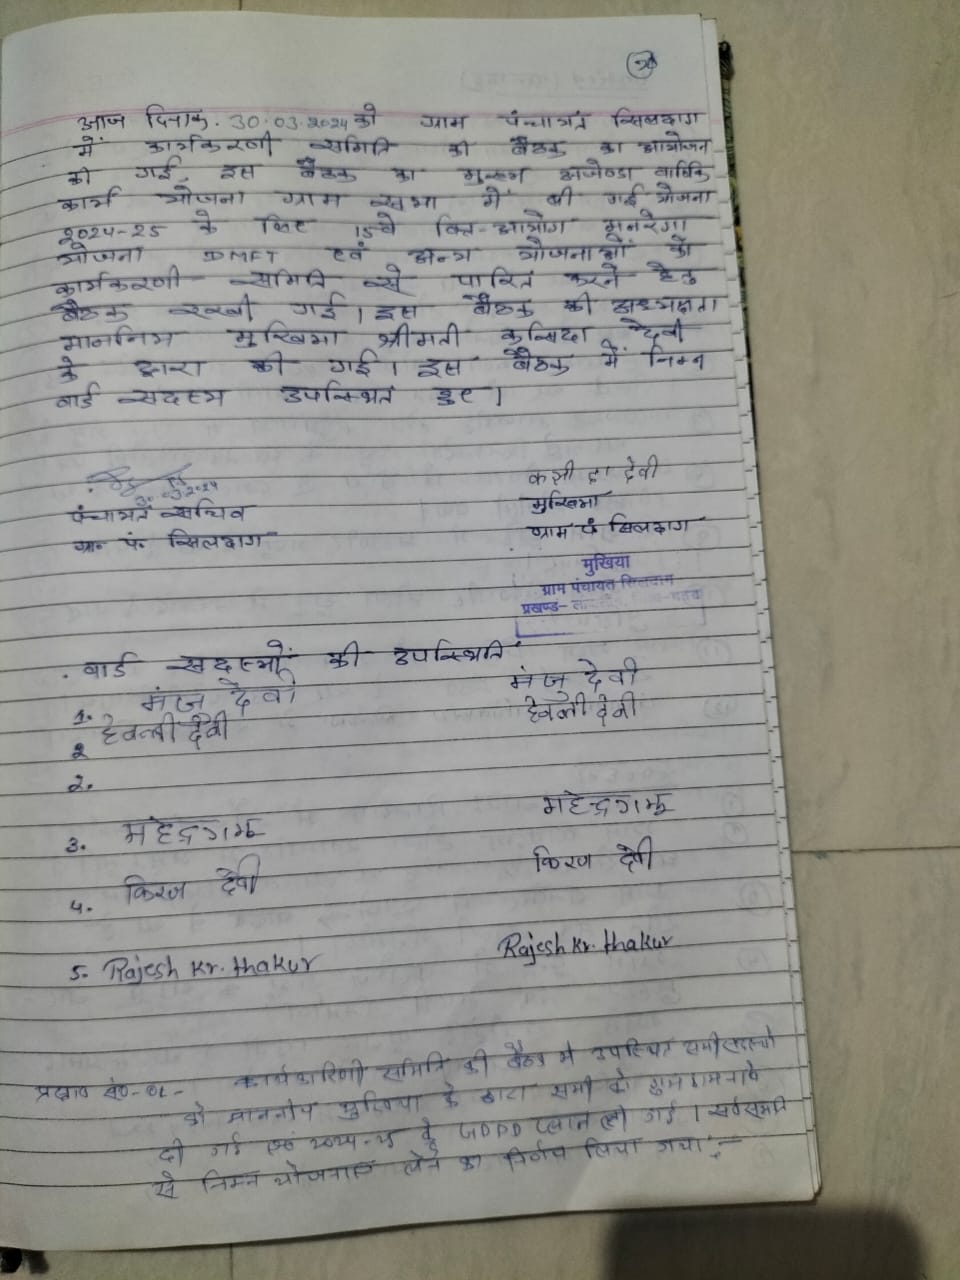 आज दिनांक. 30.03.2024 को ग्राम पंचायत सिलदाग
में कार्यकरणी समिति की बैठक का आयोजन
की गई, इस बैठक का मुख्य अजेण्डा वार्षिक
कार्य योजना ग्राम सभा में ली गई योजना
2024-25 के लिए 15वे वित्त-आयोग मनरेगा
योजना DMFT एवं अन्य योजनाओं को
कार्यकरणी समिति से पारित करने हेतु
बैठक रखी गई। इस बैठक की अध्यक्षता
माननिय मुखिया श्रीमती कसिदा देवी
के द्वारा की गई। इस बैठक में निम्न
वार्ड सदस्य उपस्थित हुए।
30.03.2024
पंचायत सचिव
ग्रा० पं० सिलदाग
कसीदा देवी
मुखिया
ग्राम पं० सिलदाग
मुखिया
ग्राम पंचायत सिलदाग
प्रखण्ड-
वार्ड सदस्यों की उपस्थिति
1. मंजु देवी मंजु देवी
2 देवन्ती देवी देवन्ती देवी
2.
3. महेन्द्र महेन्द्र
4. किरण देवी किरण देवी
5. Rajesh Kr. thakur Rajesh Kr. thakur
प्रस्ताव सं०-01- कार्यकारिणी समिति की बैठक में उपस्थित सभी सदस्यो
को माननीय मुखिया के द्वारा सभी को शुभकामनाये
दी गई एवं 2024-25 के GPDP प्लान ली गई। सर्वसम्मति
से निम्न योजनाए लेने का निर्णय लिया गया:-